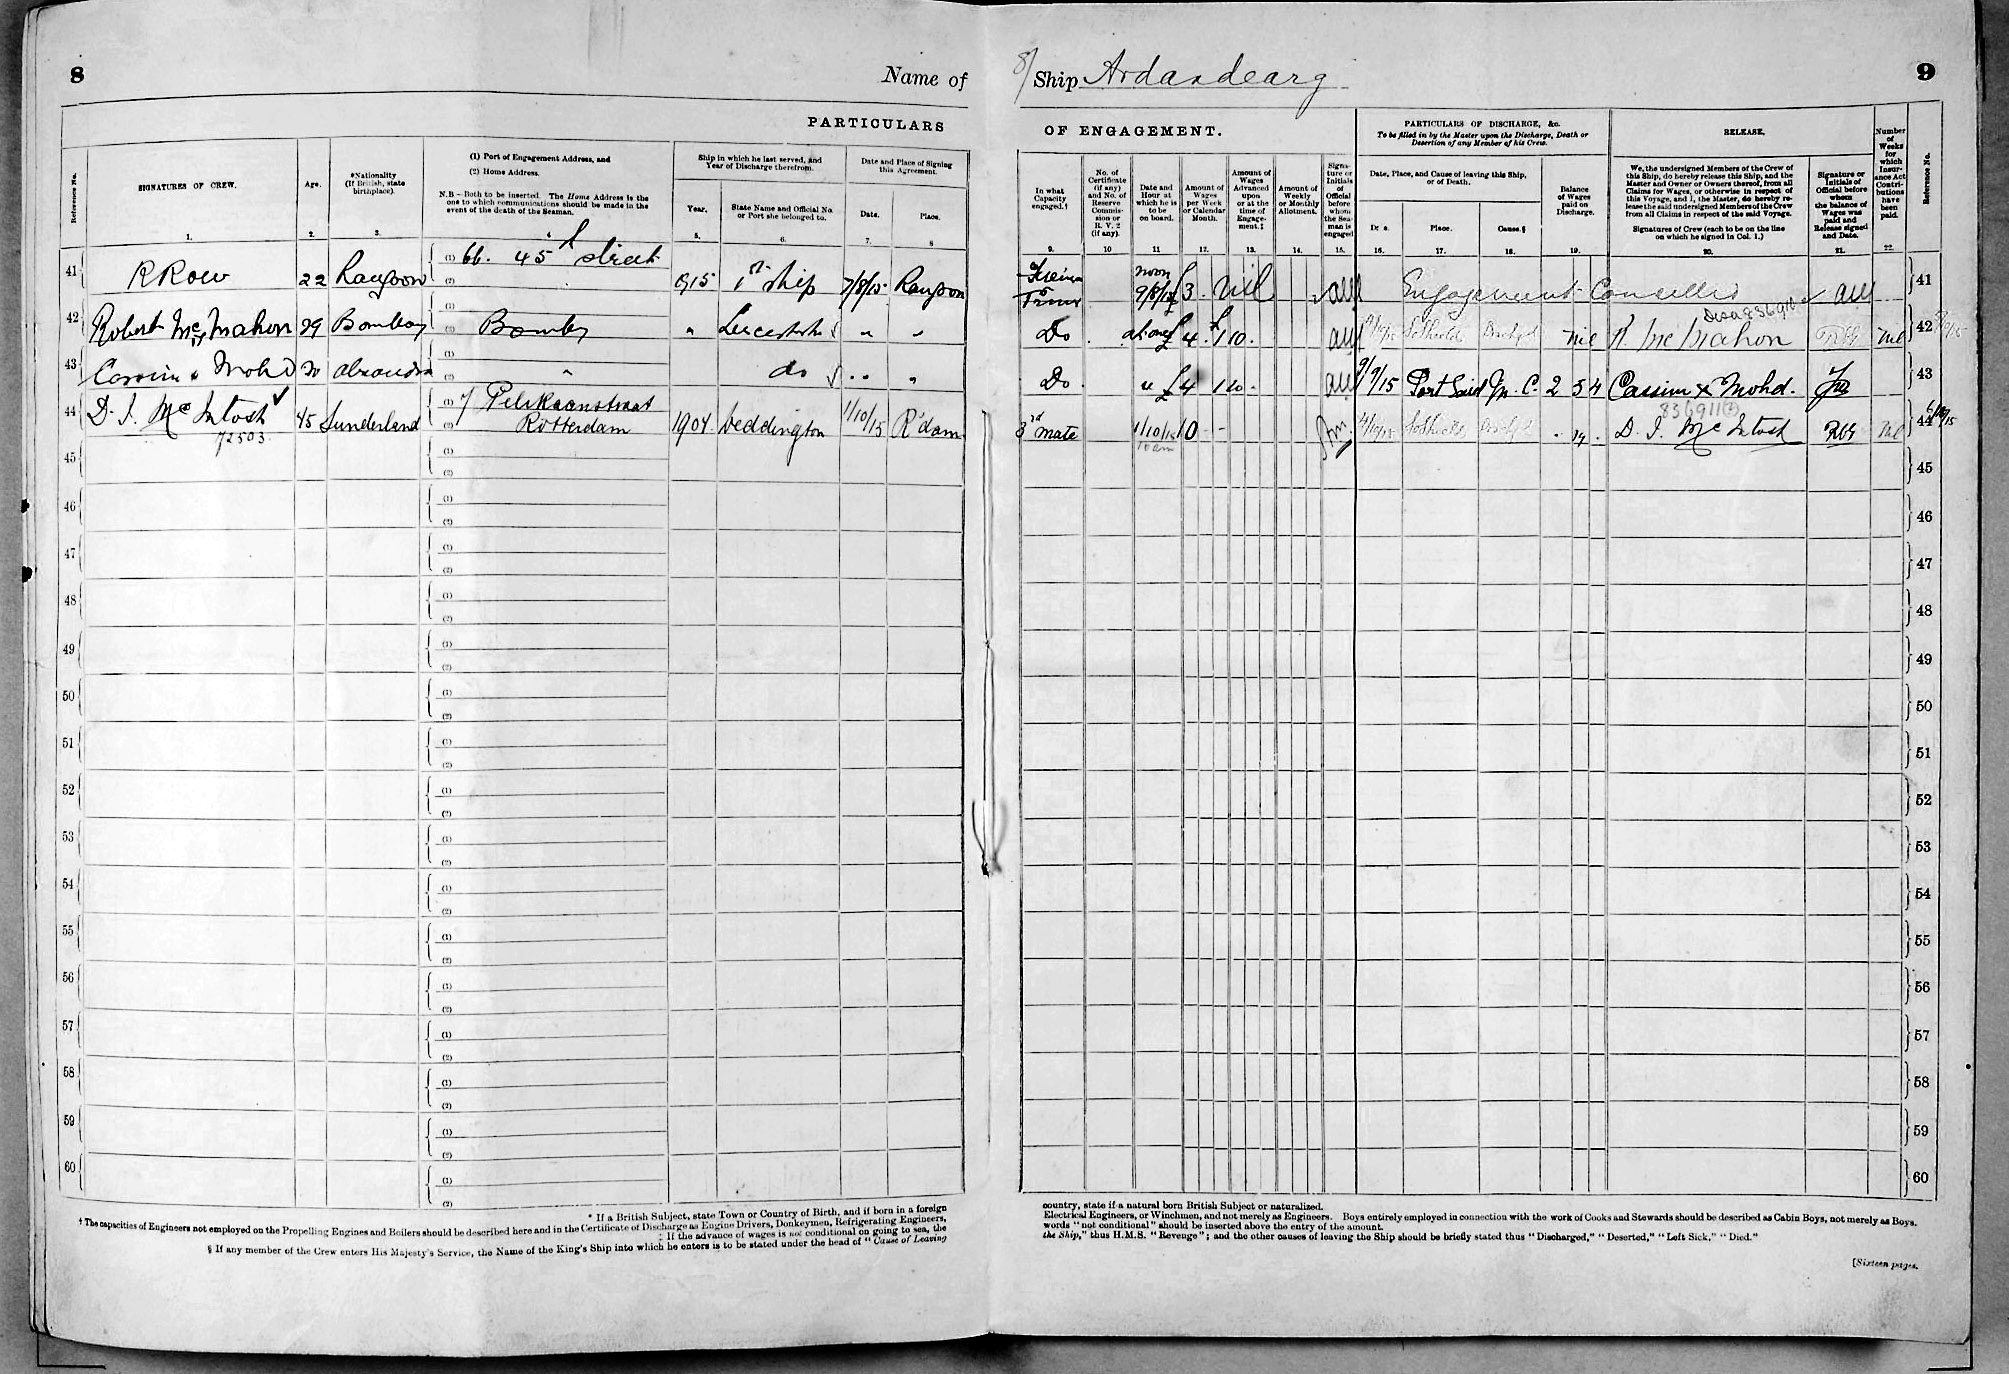 8
Name of
PARTICULARS
Reference No.
SIGNATURES OF CREW.
Age.
*Nationality
(If British, state
birthplace).
(1) Port of Engagement Address, and
(2) Home Address.
N.B – Both to be inserted. The Home Address is the
one to which communications should be made in the
event of the death of the Seaman.
Ship in which he last served, and
Year of Discharge therefrom.
Year.
State Name and Official No.
or Port she belonged to.
Date and Place of Signing
this Agreement.
Date.
Place.
1. 2. 3. 4 5. 6. 7. 8
41 R Row 22 Rangoon (1) 66. 45th street (2) 1915 1st ship 7/8/15 Rangoon
42 Robert McMahon 29 Bombay (1) (2) Bombay " " "
43 Cassim x Mohd (1) (2) " do " "
44 D. I. McIntosh 45 Sunderland (1) 7 Pelikaanstraat 1904 Weddington 1/10/15 R'dam
72503 (2) Rotterdam
45 (1)
(2)
46 (1)
(2)
47 (1)
(2)
48 (1)
(2)
49 (1)
(2)
50 (1)
(2)
51 (1)
(2)
52 (1)
(2)
53 (1)
(2)
54 (1)
(2)
55 (1)
(2)
56 (1)
(2)
57 (1)
(2)
58 (1)
(2)
59 (1)
(2)
60 (1)
(2)
* If a British Subject, state Town or Country of Birth, and if born in a foreign
† The capacities of Engineers not employed on the Propelling Engines and Boilers should be described here and in the Certificate of Discharge as Engine Drivers, Donkeymen, Refrigerating Engineers,
‡ If the advance of wages is not conditional on going to sea, the
§ If any member of the Crew enters His Majesty's Service, the Name of the King's Ship into which he enters is to be stated under the head of "Cause of Leaving
8/ Ship Ardandearg
9
OF ENGAGEMENT.
PARTICULARS OF DISCHARGE, &c.
To be filled in by the Master upon the Discharge, Death or
Desertion of any Member of his Crew.
RELEASE.
Number
of
Weeks
for
which
Insur-
ance Act
Contri-
butions
have
been
paid.
Reference No.
In what
Capacity
engaged.†
No. of
Certificate
(if any)
and No. of
Reserve
Commis-
sion or
R. V. 2
(if any).
Date and
Hour at
which he is
to be
on board.
Amount of
Wages
per Week
or Calendar
Month.
Amount of
Wages
Advanced
upon
or at the
time of
Engage-
ment.‡
Amount of
Weekly
or Monthly
Allotment.
Signa-
ture or
Initials
of
Official
before
whom
the Sea-
man is
engaged
Date, Place, and Cause of leaving this Ship,
or of Death.
Date.
Place.
Cause.§
Balance
of Wages
paid on
Discharge.
We, the undersigned Members of the Crew of
this Ship, do hereby release this Ship, and the
Master and Owner or Owners thereof, from all
Claims for Wages, or otherwise in respect of
this Voyage, and I, the Master, do hereby re-
lease the said undersigned Members of the Crew
from all Claims in respect of the said Voyage.
Signatures of Crew (each to be on the line
on which he signed in Col. 1.)
Signature or
Initials of
Official before
whom
the balance of
Wages was
paid and
Release signed
and Date.
9. 10 11 12. 13. 14. 15. 16. 17. 18. 19. 20. 21. 22
noon 9/8/15 £3. nil Engagement Cancelled 41
Do £4. £1 10. nil R. McMahon nil 42
Do " £4 1 10. 9/9/15 Port Said M. C. 2 5 4 Cassim x Mohd. 43
836911
3rd mate 1/10/15 10 - D. I. McIntosh nil 44
10 am
45
46
47
48
49
50
51
52
53
54
55
56
57
58
59
60
country, state if a natural born British Subject or naturalized.
Electrical Engineers, or Winchmen, and not merely as Engineers. Boys entirely employed in connection with the work of Cooks and Stewards should be described as Cabin Boys, not merely as Boys.
words "not conditional" should be inserted above the entry of the amount.
the Ship," thus H.M.S. "Revenge"; and the other causes of leaving the Ship should be briefly stated thus "Discharged," "Deserted," "Left Sick," "Died."
[Sixteen pages.